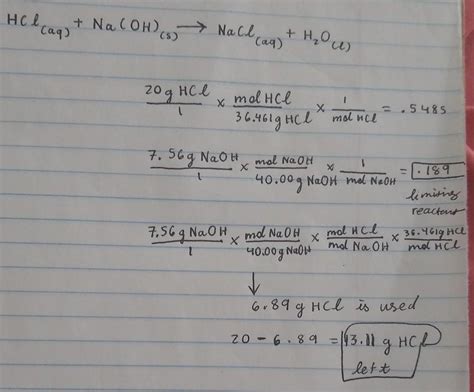 HCl(aq) + Na(OH)(s) → NaCl(aq) + H₂O(l)
20g HCl/1 × mol HCl/36.461g HCl × 1/mol HCl = .5485
7.56g NaOH/1 × mol NaOH/40.00g NaOH × 1/mol NaOH = .189
limiting
reactant
7.56g NaOH/1 × mol NaOH/40.00g NaOH × mol HCl/mol NaOH × 36.461g HCl/mol HCl
↓
6.89 g HCl is used
20 - 6.89 = 13.11 g HCl
left